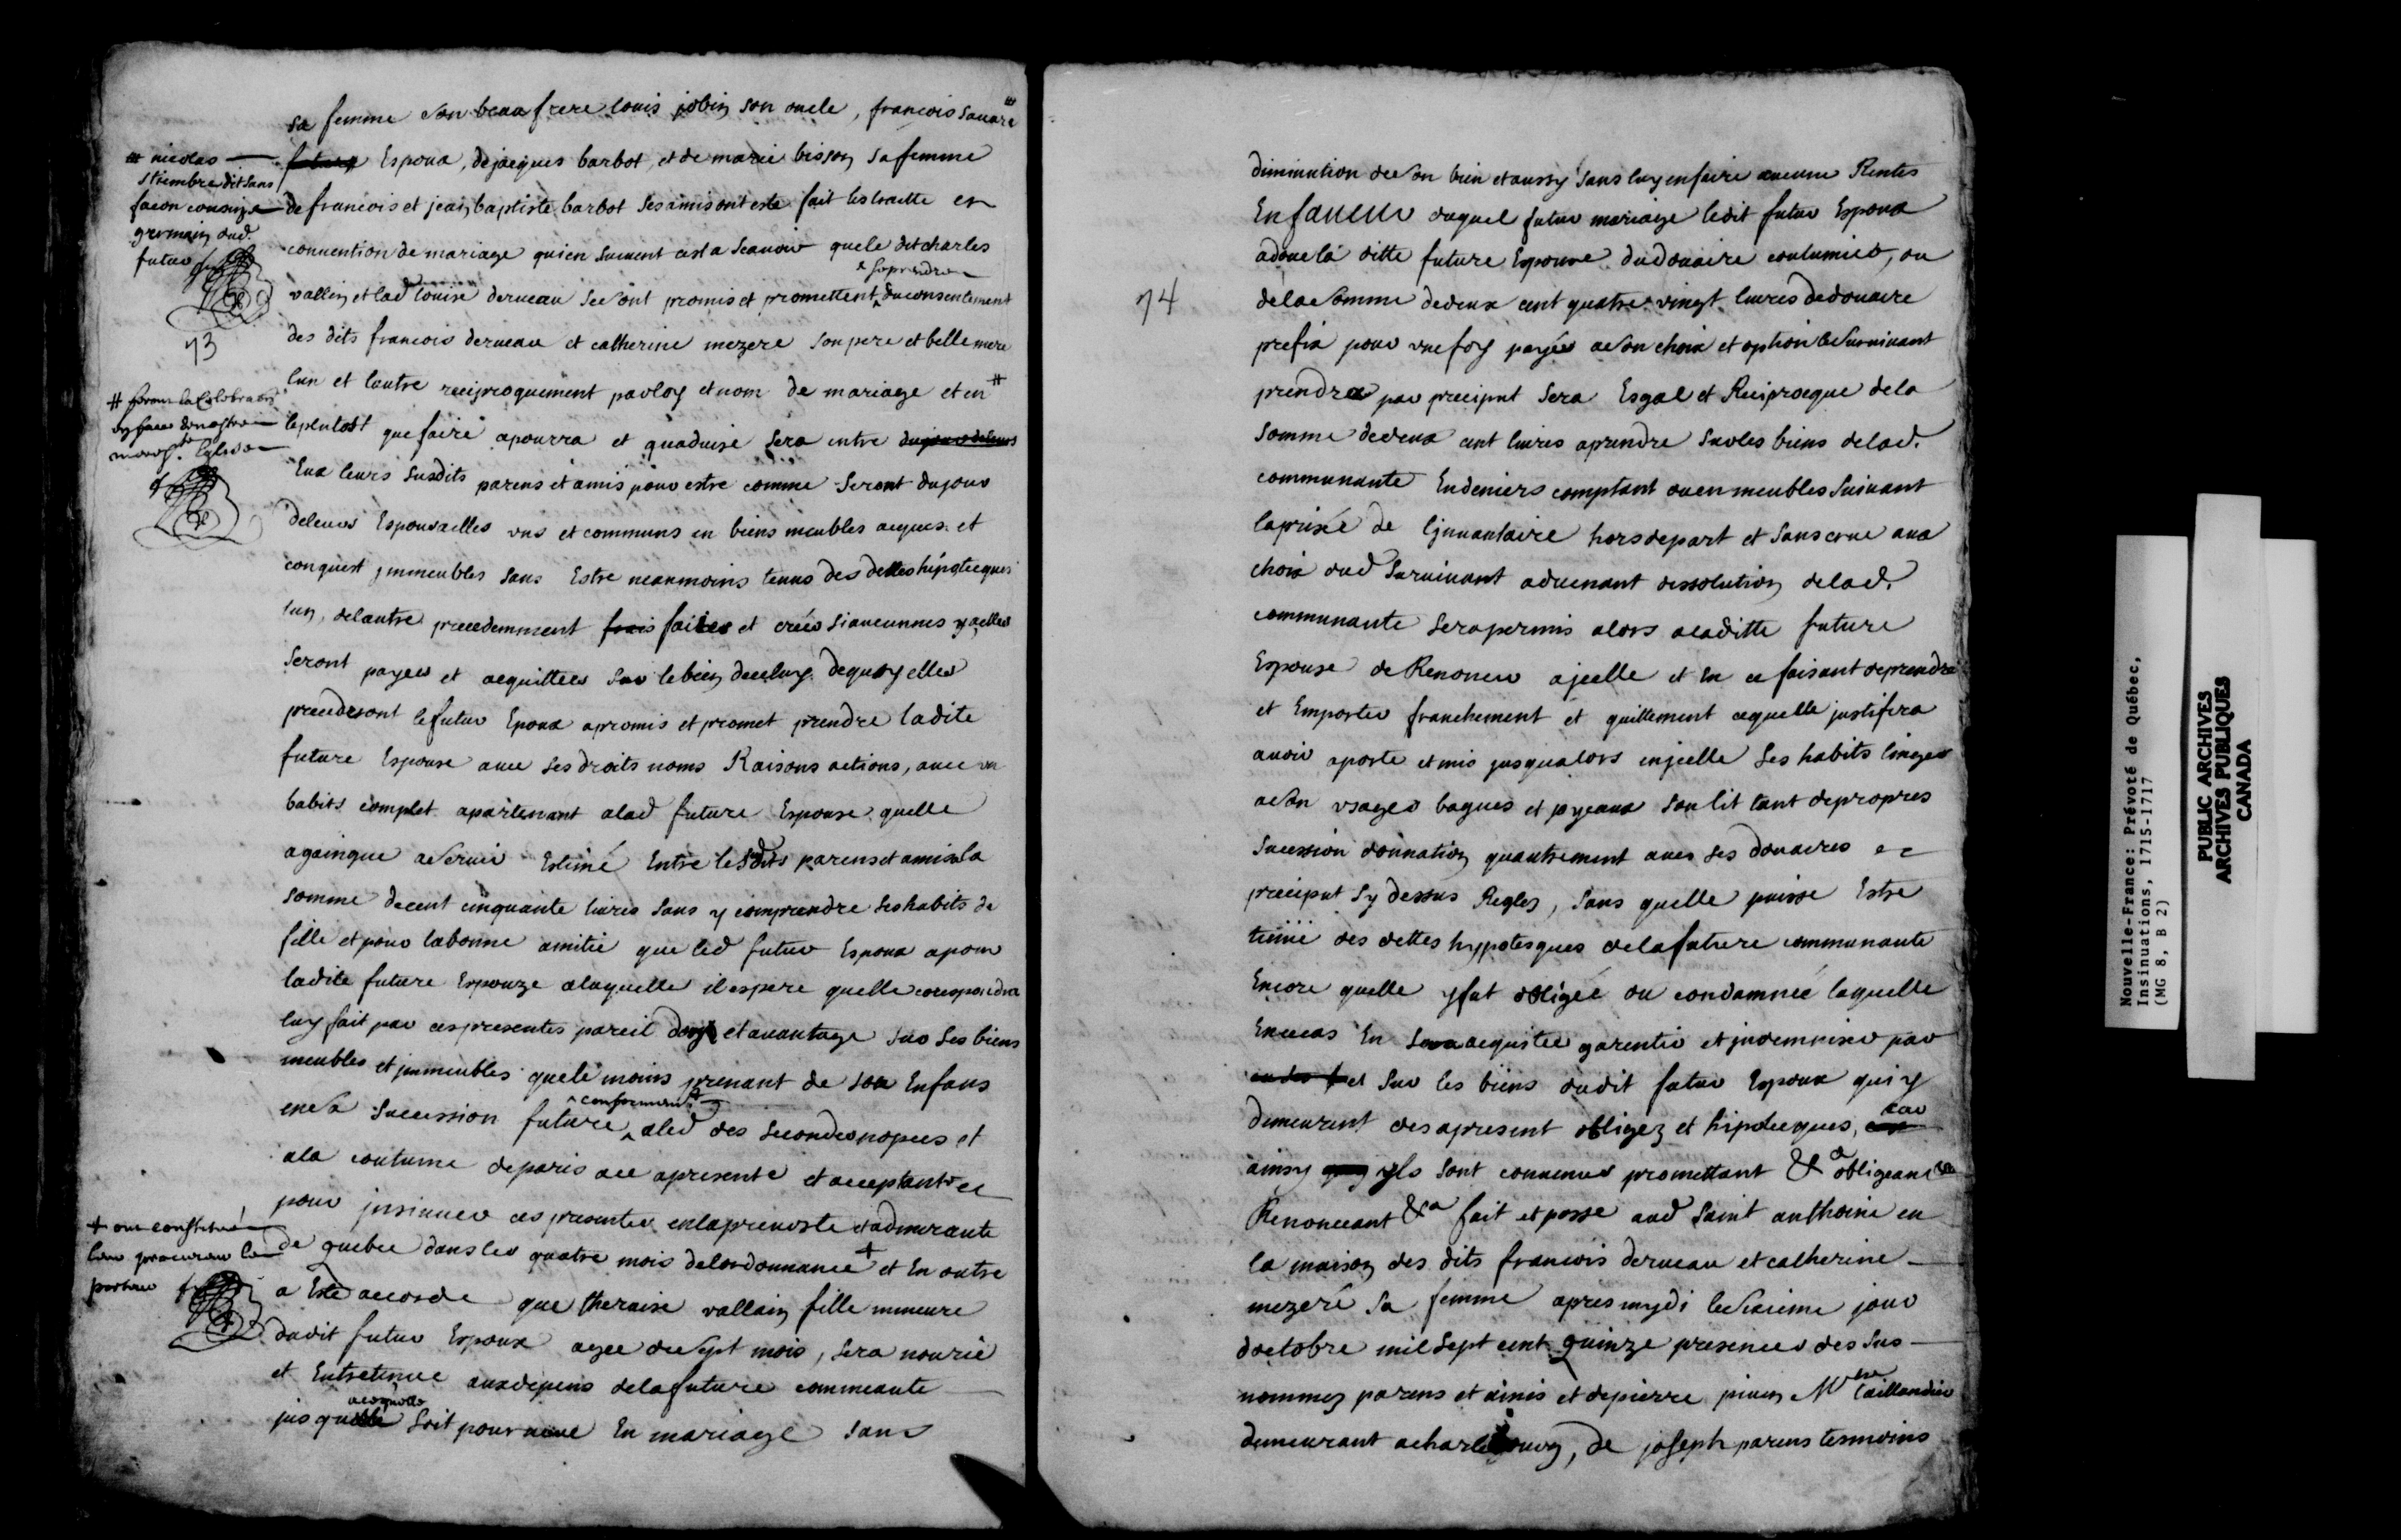 sa femme son beau frere louis jobin son oncle, francois sauvare #
# nicolas
stiembre dit sans
facon cousin
germain dud.
futur
future Espoux, de jacques barbot, et de marie bisson sa femme
de francois et jean baptiste barbot ses amis ont este fait les traitté et
convention de mariage qui en suivent cest a scavoir que le dit charles
^ se prendre
vallin et lad louise derveau se sont promis et promettent, du consentement
73
des dits francois derveau et catherine mezeré son pere et belle mere
lun et lautre reciproquement par loy et nom de mariage et en #
# feront la Celebraon
en face de nostre
mere ste Eglise
le plutost que faire ce pourra et quadvisé sera entre du jour de leurs
Eux leurs susdits parens et amis pour estre comme seront du jour
de leurs Espousailles uns et communs en biens meubles acquis et
conquest jmmeubles sans Estre neanmoins tenus des dettes hipotecques
lun, de lautre precedemment frais faites et creés si aucunnes y a elles
seront payées et acquittées sur le bien de celuy de quoy elles
procederont le futur Epoux a promis et promet prendre ladite
future Espouse avec ses droits noms Raisons actions, avec un
habits complet apartenant a lad future Espouse quelle
a gaingné a servir Estimé Entre lesdits parens et amis a la
somme de cent cinquante livres sans y comprendre ses habits de
fille et pour la bonne amitié que led futur Espoux a pour
ladite future Espouze a laquelle il espere quelle corespondra
luy fait par ces presentes pareil don et avantage sur ses biens
meubles et jmmeubles que le moins prenant de son Enfans
^ conformémt
en sa sucession future ^ a led des secondes nopces et
a la coutume de paris a ce a presente et acceptante et
pour jnsinuer ces presentes en la prevosté et admirauté
+ ont constitué
leur procureur le
porteur
de quebec dans les quatre mois de lordonnance + et En outre
a Esté accordé que theraise vallain fille mineure
dudit futur Espoux agée de sept mois, sera nourié
et Entretenue aux depens de la future commeauté
a ce quelle
jusquelle soit pourveue En mariage sans
diminution de son bien et aussy sans luy en faire aucune Rentes
En faveur duquel futur mariage ledit futur Espoux
a doué la ditte future Epouse du douaire coutumier, ou
74
de la somme de deux cent quatre vingt livres de douaire
prefix pour une foy payée a son choix et option le survivant
prendra par preciput sera Esgal et Reciprocque de la
somme de deux cent livres a prendre sur les biens de lad.
communauté En deniers comptant ou en meubles suivant
la prisée de ljnvantaire hors de part et sans crue aux
choix dud survivant advenant dissolution de lad.
communauté sera permis alors a laditte future
Espouse de Renoncer a jcelle et En ce faisant de prendre
et Emporter franchement et quittement ce quelle justifira
avoir aporté et mis jusqualors en jcelle ses habits linges
a son usages bagues et joyeaux son lit tant de propres
sucession donnation quautrement avec ses douaires et
preciput sy dessus Reglez, sans quelle puisse Estre
tenue des dettes hypotesques de la future communauté
Encore quelle y fut obligée ou condamnée laquelle
En ce cas En sera acquitée garentie et jndemnisée par
et sur les biens dudit futur Espoux qui y
demeurent des apresent obligez et hipotecques, car
ainsy yls sont convenus promettant &a obligeant &a
Renonceant &a fait et passé aud Saint anthoine en
la maison des dits francois derveau et catherine
mezeré sa femme apres mydi le sixieme jour
doctobre mil sept cent quinze presences des sus
nommez parens et amis et de pierre pivin Mtre taillandier
demeurant a charlebourg, de joseph parens tesmoins
Nouvelle-France: Prévoté de Québec,
Insinuations, 1715-1717
(MG 8, B 2)
PUBLIC ARCHIVES
ARCHIVES PUBLIQUES
CANADA